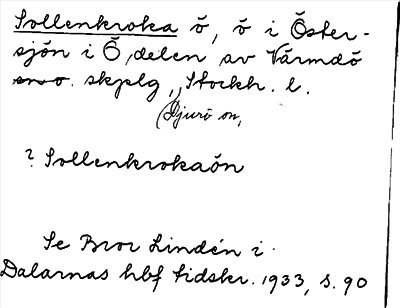 Sollenkroka ö, ö i Öster-
sjön i Ö, delen av Värmdö
sn o. skplg, Stockh. l.
(Djurö sn,
? Sollenkrokaön
Se Bror Lindén i
Dalarnas hbf tidskr. 1933, s. 90